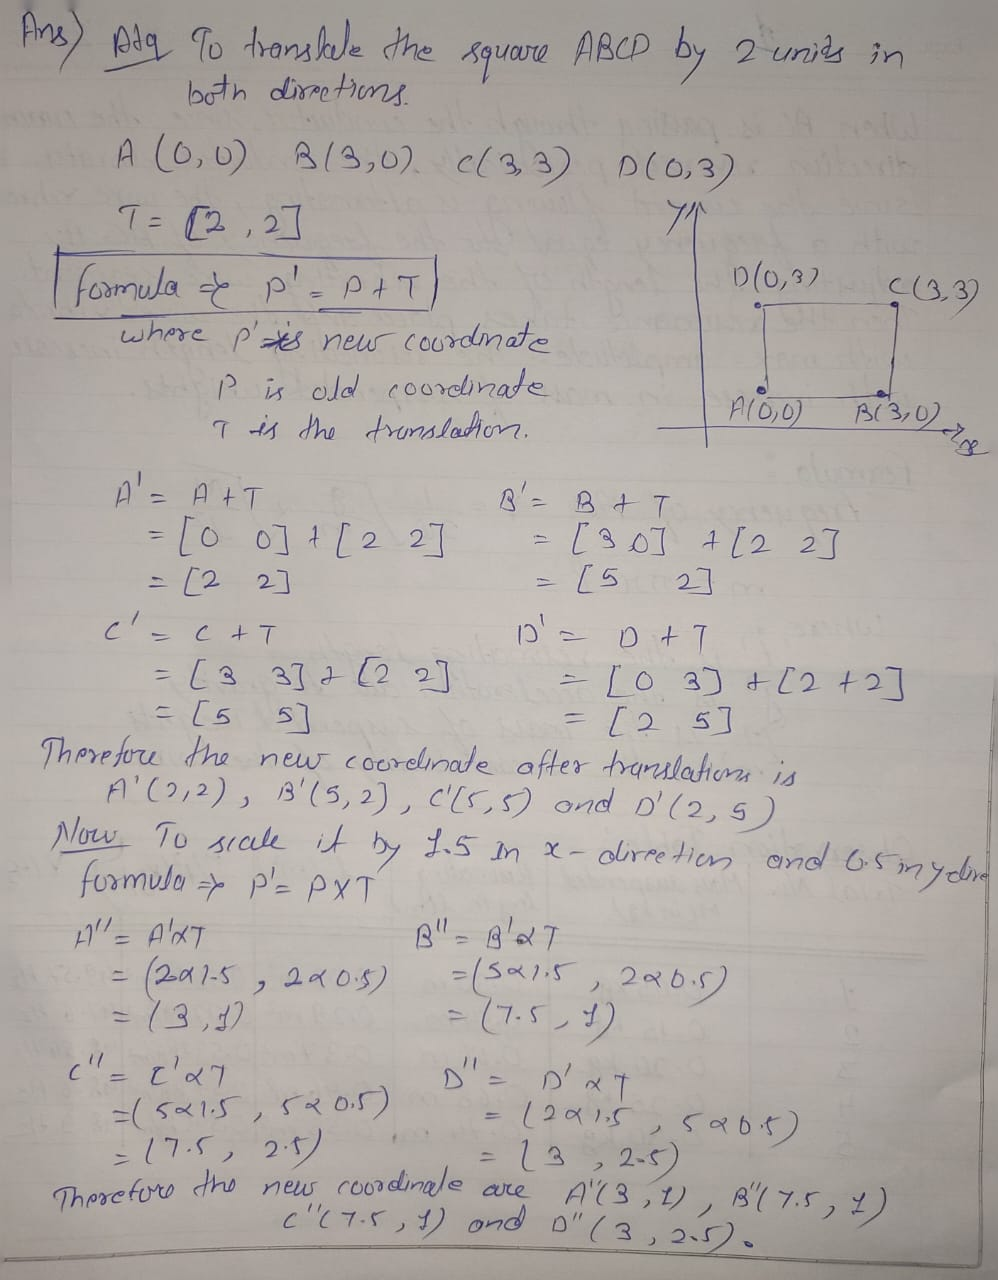 Ans) Atq To translate the square ABCD by 2 units in
both directions.
A (0,0) B(3,0) C(3,3) D(0,3)
T = [2 , 2]
formula ⇒ P' = P + T
where P' is new coordinate
P is old coordinate
T is the translation.
Y
D(0,3) C(3,3)
A(0,0) B(3,0)
x
A' = A + T
= [0 0] + [2 2]
= [2 2]
B' = B + T
= [3 0] + [2 2]
= [5 2]
C' = C + T
= [3 3] + [2 2]
= [5 5]
D' = D + T
= [0 3] + [2 +2]
= [2 5]
Therefore the new coordinate after translations is
A'(2,2), B'(5,2), C'(5,5) and D'(2,5)
Now To scale it by 1.5 in x-direction and 0.5 in y dire
formula ⇒ P' = P x T
A'' = A' x T
= (2x1.5 , 2x0.5)
= (3,1)
B'' = B' x T
= (5x1.5 , 2x0.5)
= (7.5, 1)
C'' = C' x T
= (5x1.5 , 5x0.5)
= (7.5, 2.5)
D'' = D' x T
= (2x1.5 , 5x0.5)
= (3 , 2.5)
Therefore the new coordinate are A''(3,1), B''(7.5,1)
C''(7.5,1) and D''(3, 2.5).